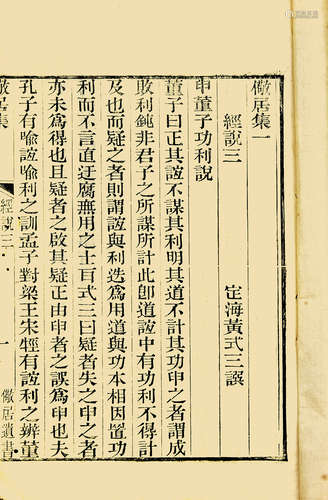 儆居集一
經說三　定海黃式三譔
申董子功利說
董子曰正其誼不謀其利明其道不計其功申之者謂成
敗利鈍非君子之所謀所計此卽道誼中有功利不得計
及也而疑之者則謂誼與利迭爲用道與功本相因置功
利而不言直迂腐無用之士耳式三曰疑者失之申之者
亦未爲得也且疑者之啟其疑正由申者之誤爲申也夫
孔子有喩誼喩利之訓孟子對梁王宋牼有誼利之辨董
儆居集　經說三　一　儆居遺書